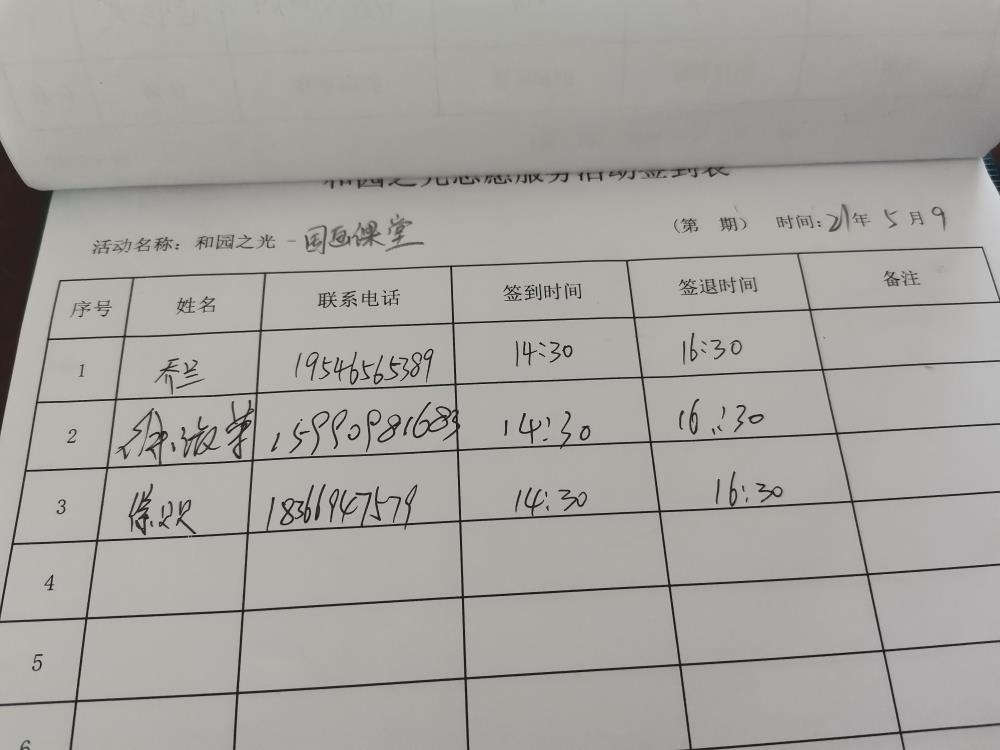 和园之光志愿服务活动签到表
活动名称：和园之光 - 国画课堂 （第 期） 时间：21年 5月9
序号 姓名 联系电话 签到时间 签退时间 备注
1 乔兰 19546565389 14:30 16:30
2 15990981683 14:30 16:30
3 徐 18366947579 14:30 16:30
4
5
6